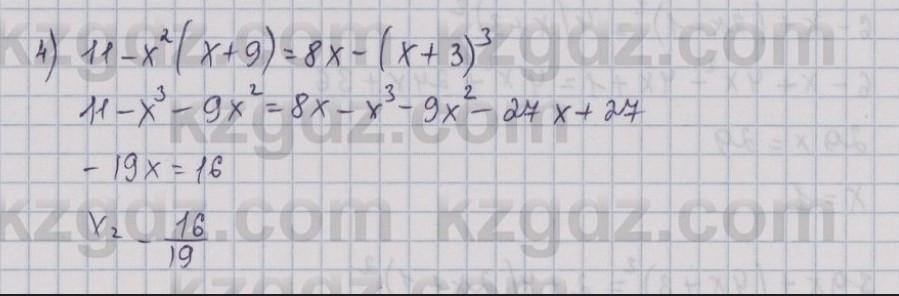 4) 11 - x²(x + 9) = 8x - (x + 3)³
11 - x³ - 9x² = 8x - x³ - 9x² - 27x + 27
- 19x = 16
x = - 16/19
kzgdz.com kzgdz.com
kzgdz.com
kzgdz.com kzgdz.com